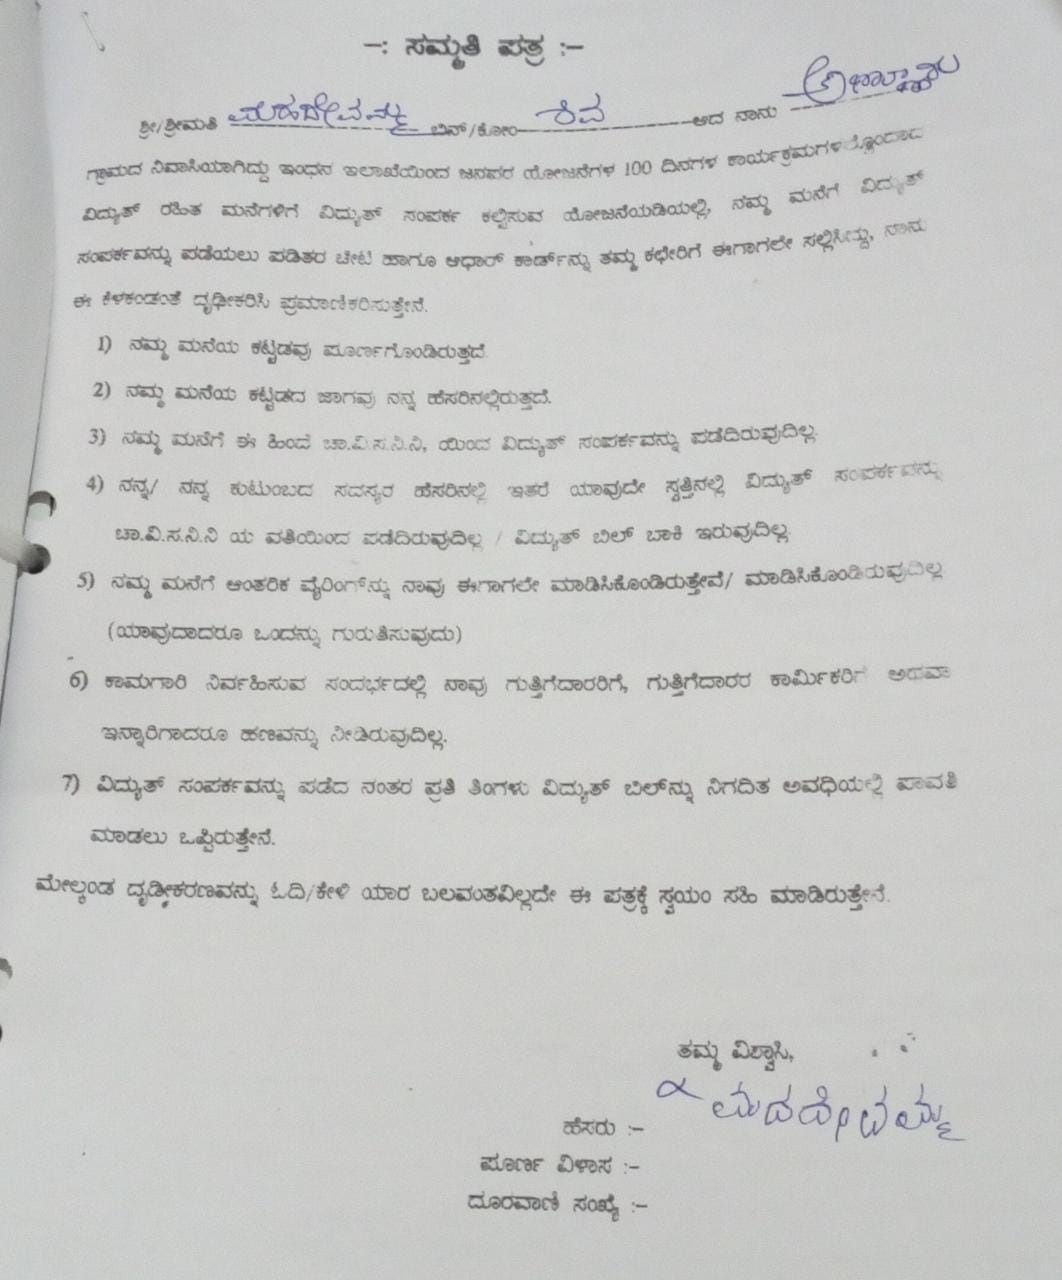 -: ಸಮ್ಮತಿ ಪತ್ರ :-
ಶ್ರೀ/ಶ್ರೀಮತಿ ಮಹದೇವಮ್ಮ ಬಿನ್/ಕೋಂ ಶಿವ ಆದ ನಾನು
ಗ್ರಾಮದ ನಿವಾಸಿಯಾಗಿದ್ದು ಇಂಧನ ಇಲಾಖೆಯಿಂದ ಜನಪರ ಯೋಜನೆಗಳ 100 ದಿನಗಳ ಕಾರ್ಯಕ್ರಮಗಳಲ್ಲೊಂದಾದ
ವಿದ್ಯುತ್ ರಹಿತ ಮನೆಗಳಿಗೆ ವಿದ್ಯುತ್ ಸಂಪರ್ಕ ಕಲ್ಪಿಸುವ ಯೋಜನೆಯಡಿಯಲ್ಲಿ, ನಮ್ಮ ಮನೆಗೆ ವಿದ್ಯುತ್
ಸಂಪರ್ಕವನ್ನು ಪಡೆಯಲು ಪಡಿತರ ಚೀಟಿ ಹಾಗೂ ಆಧಾರ್ ಕಾರ್ಡ್‌ನ್ನು ತಮ್ಮ ಕಛೇರಿಗೆ ಈಗಾಗಲೇ ಸಲ್ಲಿಸಿದ್ದು, ನಾನು
ಈ ಕೆಳಕಂಡಂತೆ ದೃಢೀಕರಿಸಿ ಪ್ರಮಾಣಿಕರಿಸುತ್ತೇನೆ.
1) ನಮ್ಮ ಮನೆಯ ಕಟ್ಟಡವು ಪೂರ್ಣಗೊಂಡಿರುತ್ತದೆ.
2) ನಮ್ಮ ಮನೆಯ ಕಟ್ಟಡದ ಜಾಗವು ನನ್ನ ಹೆಸರಿನಲ್ಲಿರುತ್ತದೆ.
3) ನಮ್ಮ ಮನೆಗೆ ಈ ಹಿಂದೆ ಚಾ.ವಿ.ಸ.ನಿ.ನಿ, ಯಿಂದ ವಿದ್ಯುತ್ ಸಂಪರ್ಕವನ್ನು ಪಡೆದಿರುವುದಿಲ್ಲ.
4) ನನ್ನ/ ನನ್ನ ಕುಟುಂಬದ ಸದಸ್ಯರ ಹೆಸರಿನಲ್ಲಿ ಇತರೆ ಯಾವುದೇ ಸ್ವತ್ತಿನಲ್ಲಿ ವಿದ್ಯುತ್ ಸಂಪರ್ಕವನ್ನು
ಚಾ.ವಿ.ಸ.ನಿ.ನಿ ಯ ವತಿಯಿಂದ ಪಡೆದಿರುವುದಿಲ್ಲ / ವಿದ್ಯುತ್ ಬಿಲ್ ಬಾಕಿ ಇರುವುದಿಲ್ಲ.
5) ನಮ್ಮ ಮನೆಗೆ ಆಂತರಿಕ ವೈರಿಂಗ್‌ನ್ನು ನಾವು ಈಗಾಗಲೇ ಮಾಡಿಸಿಕೊಂಡಿರುತ್ತೇವೆ/ ಮಾಡಿಸಿಕೊಂಡಿರುವುದಿಲ್ಲ
(ಯಾವುದಾದರೂ ಒಂದನ್ನು ಗುರುತಿಸುವುದು)
6) ಕಾಮಗಾರಿ ನಿರ್ವಹಿಸುವ ಸಂದರ್ಭದಲ್ಲಿ ನಾವು ಗುತ್ತಿಗೆದಾರರಿಗೆ, ಗುತ್ತಿಗೆದಾರರ ಕಾರ್ಮಿಕರಿಗೆ ಅಥವಾ
ಇನ್ನಾರಿಗಾದರೂ ಹಣವನ್ನು ನೀಡಿರುವುದಿಲ್ಲ.
7) ವಿದ್ಯುತ್ ಸಂಪರ್ಕವನ್ನು ಪಡೆದ ನಂತರ ಪ್ರತಿ ತಿಂಗಳು ವಿದ್ಯುತ್ ಬಿಲ್‌ನ್ನು ನಿಗದಿತ ಅವಧಿಯಲ್ಲಿ ಪಾವತಿ
ಮಾಡಲು ಒಪ್ಪಿರುತ್ತೇನೆ.
ಮೇಲ್ಕಂಡ ದೃಢೀಕರಣವನ್ನು ಓದಿ/ಕೇಳಿ ಯಾರ ಬಲವಂತವಿಲ್ಲದೇ ಈ ಪತ್ರಕ್ಕೆ ಸ್ವಯಂ ಸಹಿ ಮಾಡಿರುತ್ತೇನೆ.
ತಮ್ಮ ವಿಶ್ವಾಸಿ,
ಹೆಸರು :- ಮಹದೇವಮ್ಮ
ಪೂರ್ಣ ವಿಳಾಸ :-
ದೂರವಾಣಿ ಸಂಖ್ಯೆ :-